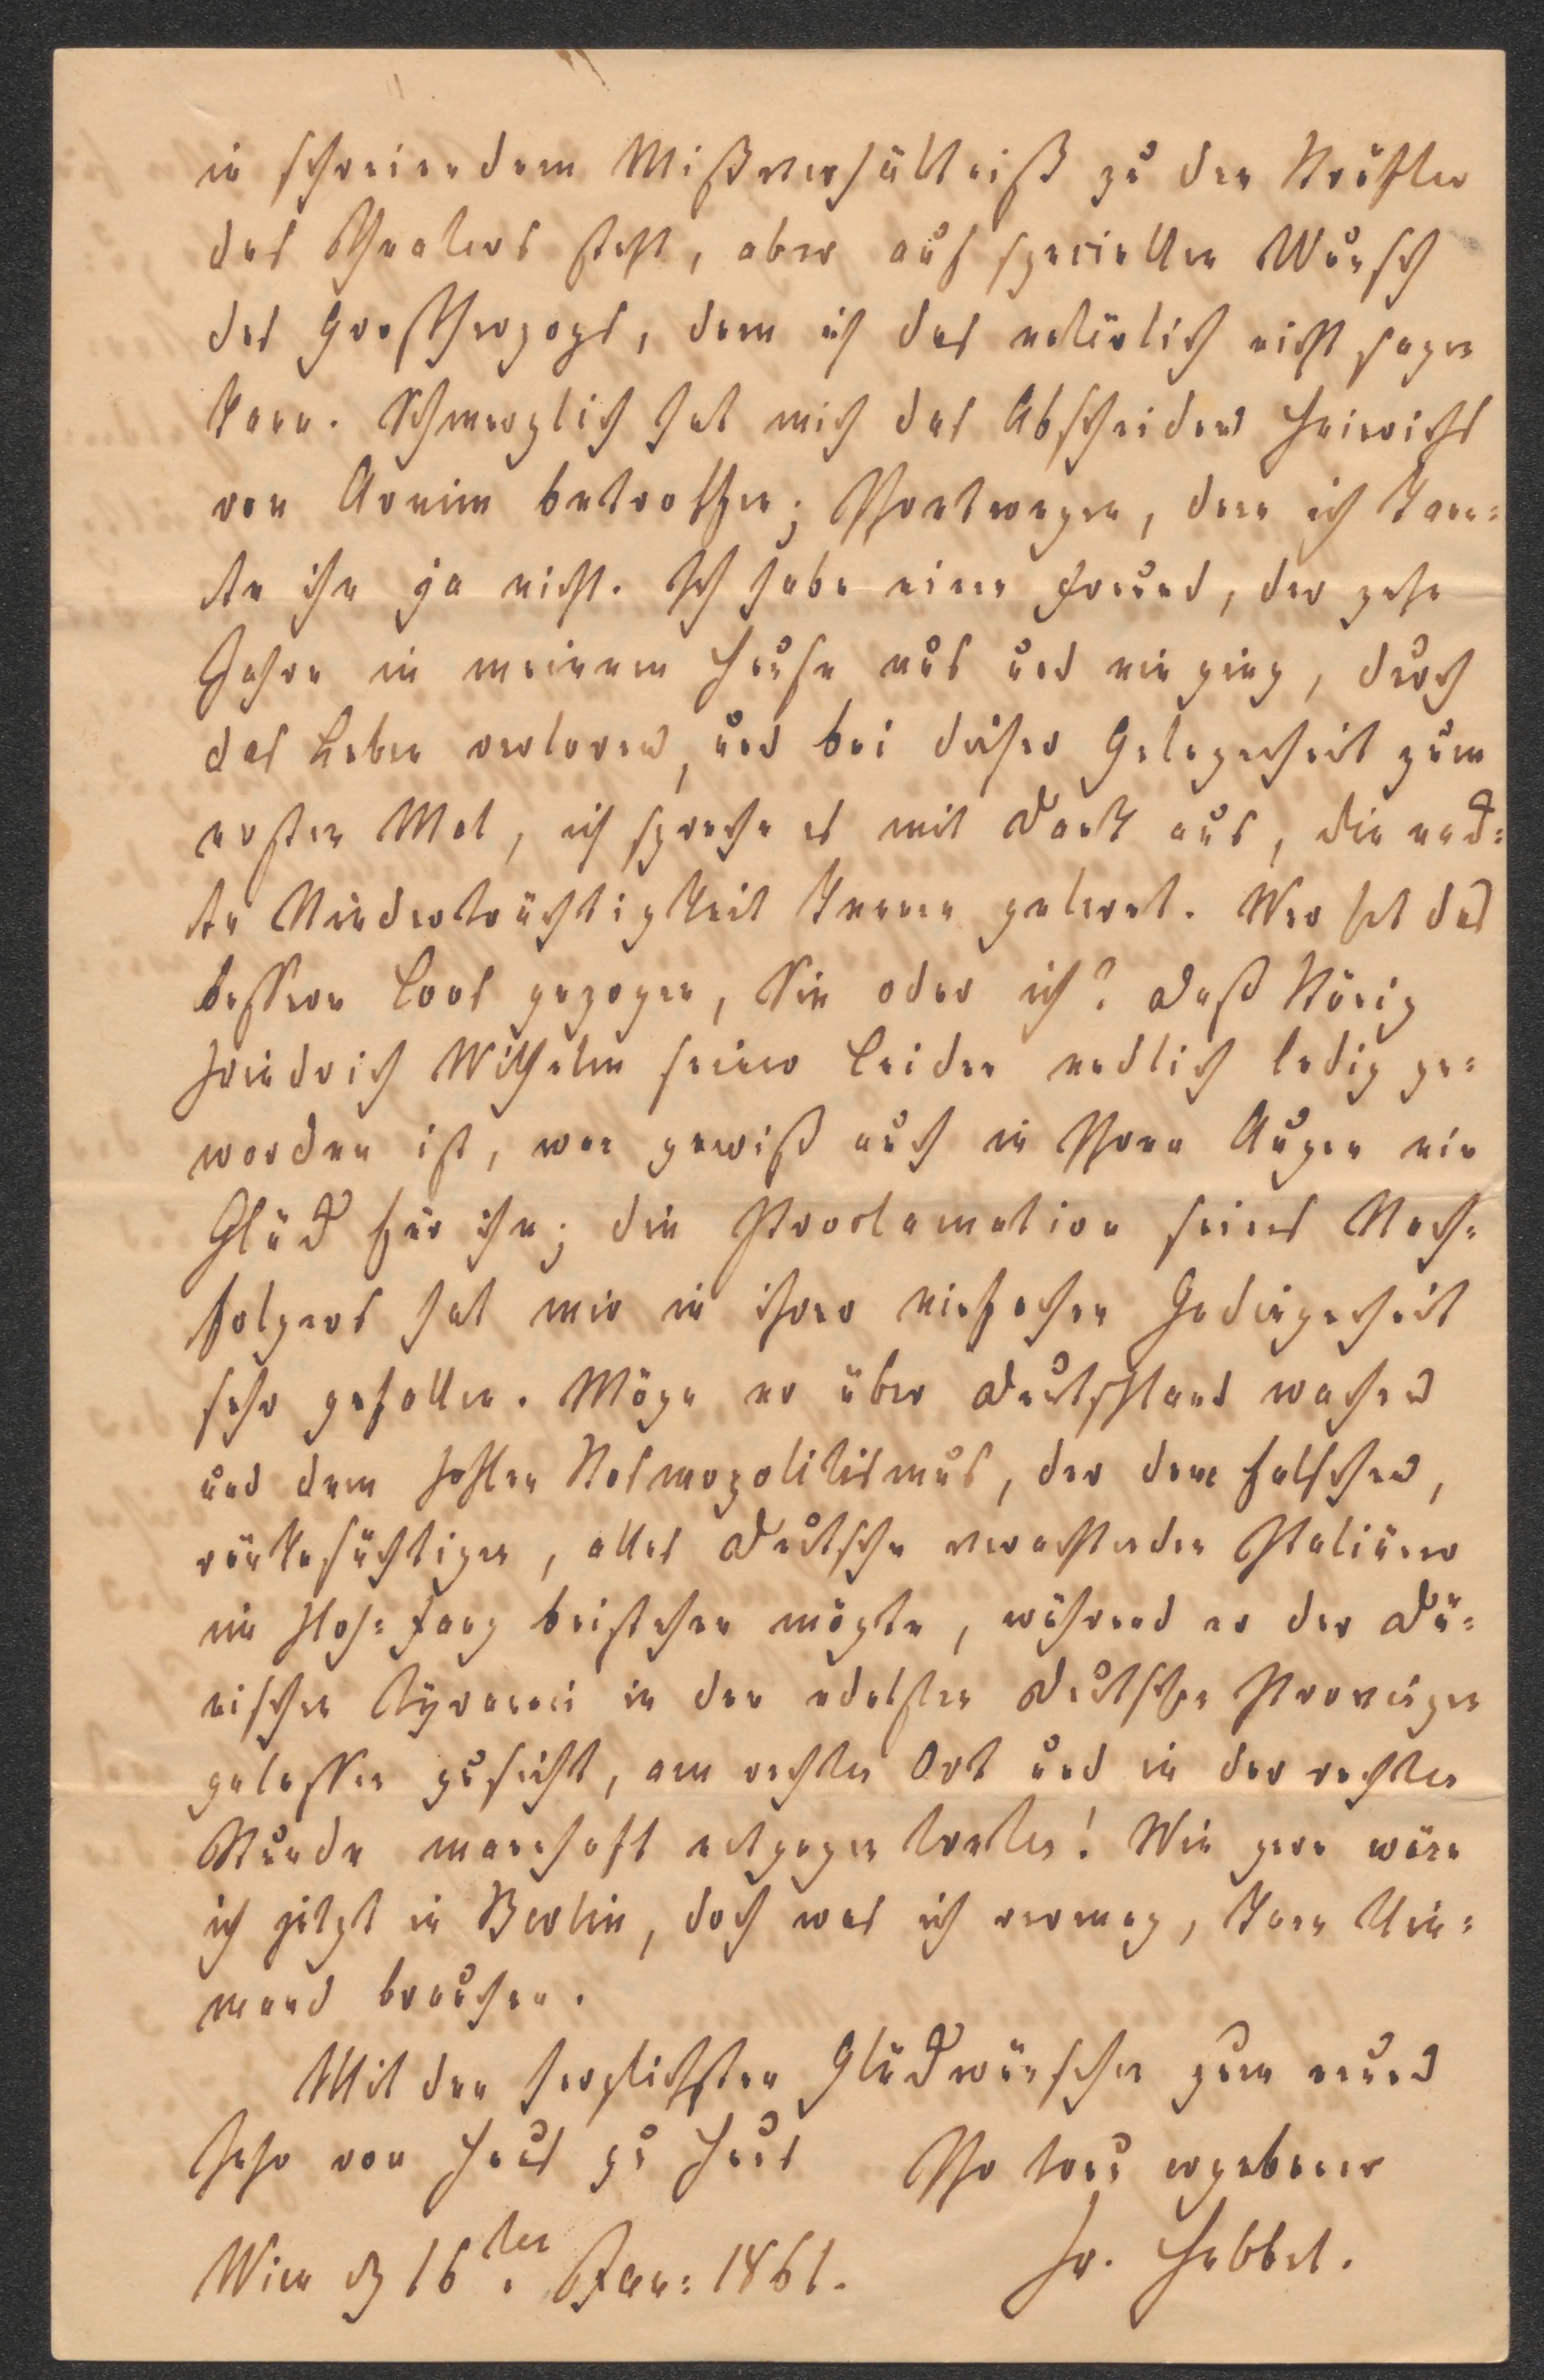 in schreiendem Mißverhältniß zu den Kräften
des Theaters steht, aber auf speciellen Wunsch
des Großherzogs, dem ich das natürlich nicht sagen
kann. Schmerzlich hat mich das Abscheiden Heinrichs
von Arnim betroffen; Ihretwegen, denn ich kann=
te ihn ja nicht. Ich habe einen Freund, der zehn
Jahre in meinem Hause aus und ein ging, durch
das Leben verloren, und bei dieser Gelegenheit zum
ersten Mal, ich spreche es mit Dank aus, die nack=
te Niederträchtigkeit kennen gelernt. Wer hat das
bessere Loos gezogen, Sie oder ich? Daß König
Friedrich Wilhelm seiner Leiden endlich ledig ge=
worden ist, war gewiß auch in Ihren Augen ein
Glück für ihn; die Proclamation seines Nach=
folgers hat mir in ihrer einfachen Gediegenheit
sehr gefallen. Möge er über Deutschland wachen
und dem hohlen Kosmopolitismus, der dem falschen,
ränkesüchtigen, alles Deutsche verachtenden Italiäner
im Hoh= Fang beistehen mögte, während er der Dä=
nischen Tyrannei in den edelsten Deutschen Provinzen
gelassen zusieht, am rechten Ort und in der rechten
Stunde mannhaft entgegen treten! Wie gern wäre
ich jetzt in Berlin, doch was ich vermag, kann Nie=
mand brauchen.
Mit den herzlichsten Glückwünschen zum neuen
Jahr von Haus zu Haus Ihr treu ergebener
Wien d 16ten Jan: 1861. Fr. Hebbel.